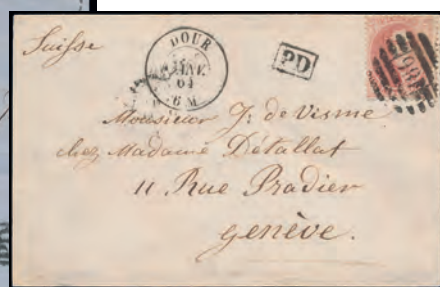 Suisse
DOUR
JANV
64
6 M
PD
Monsieur J: de Visme
chez Madame Détallat
11 Rue Pradier
Genève.